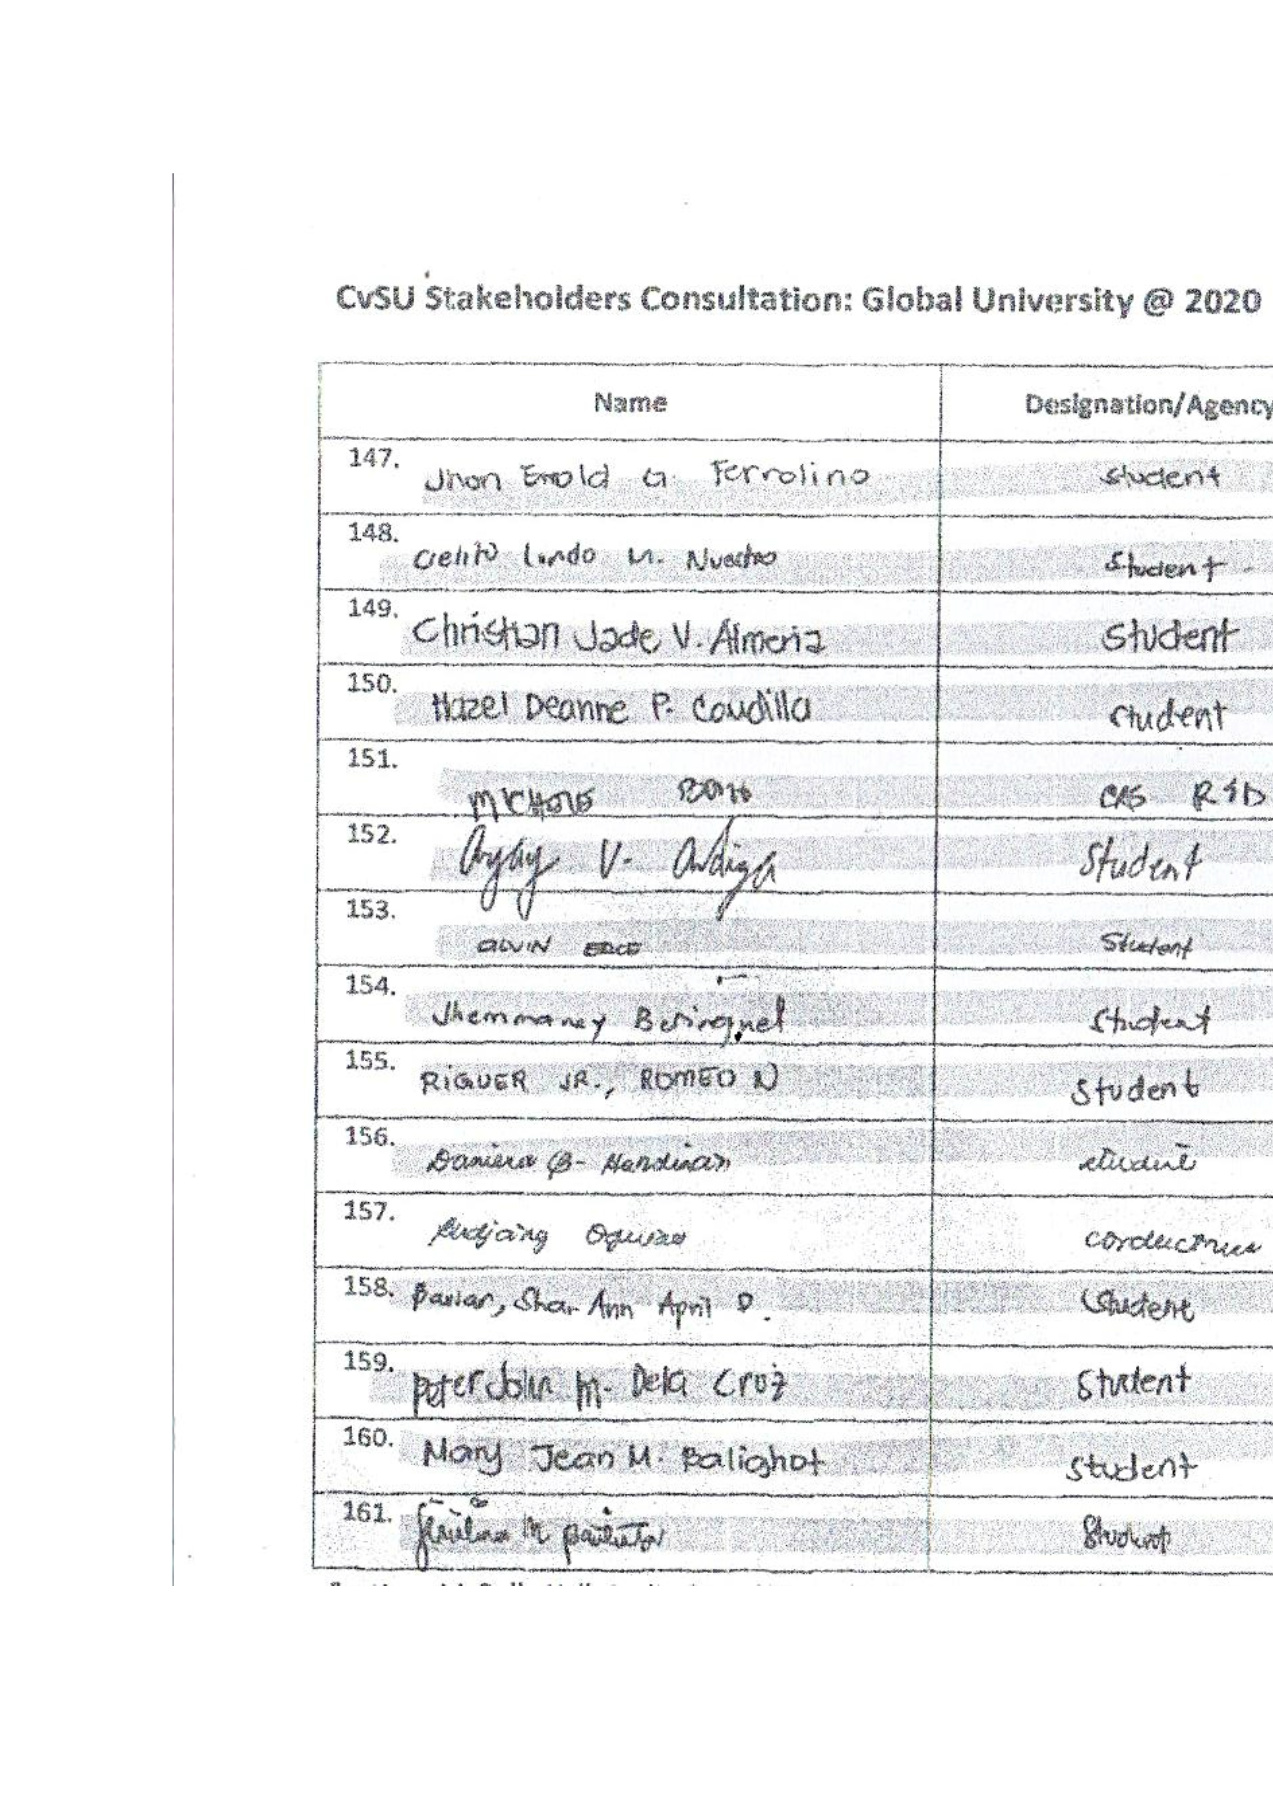 CvSU Stakeholders Consultation: Global University @ 2020
Name Designation/Agency
147. Jhon Errold G. Ferrolino Student
148. Cielito Lindo M. Student
149. Christian Jade V. Almeria Student
150. Hazel Deanne P. Caudilla student
151. CAS R&D
152. V. Student
153. ALVIN Student
154. Jhemmaney student
155. RIGUER JR., ROMEO N Student
156. B. student
157.
158. Shar Ann April D. Student
159. Peter John M. Dela Cruz Student
160. Mary Jean M. Balighot student
161. M Student